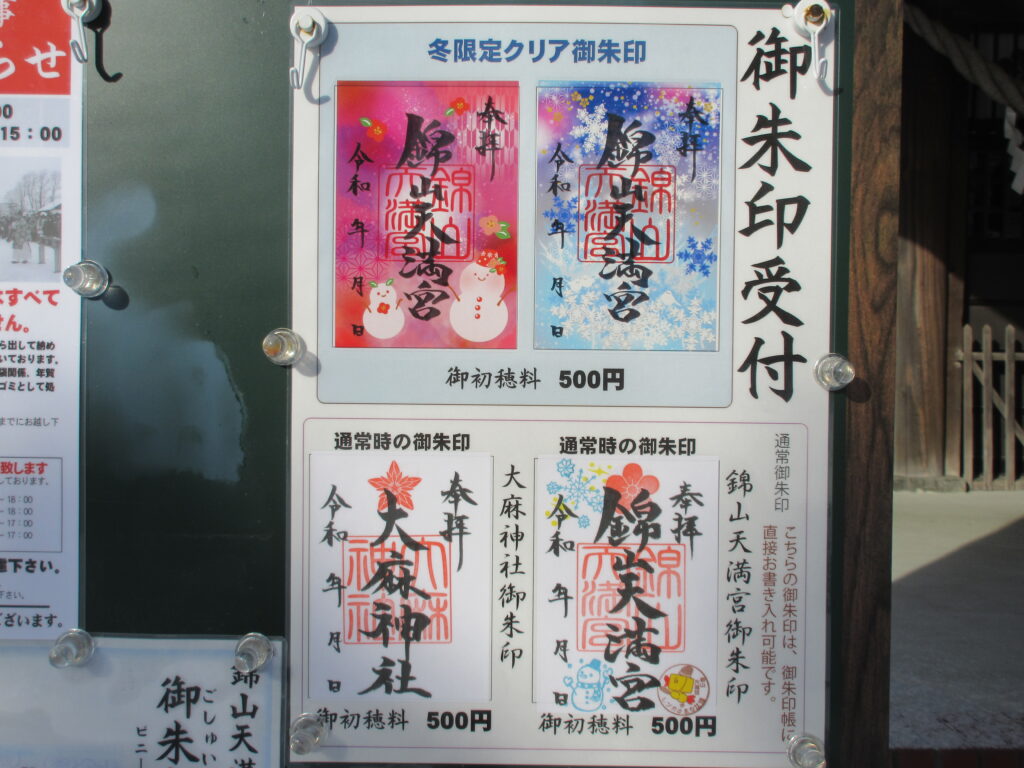 御朱印受付
冬限定クリア御朱印
奉拝
錦山天満宮
令和 年 月 日
奉拝
錦山天満宮
令和 年 月 日
御初穂料 500円
通常時の御朱印
奉拝
大麻神社
令和 年 月 日
大麻神社御朱印
御初穂料 500円
通常時の御朱印
奉拝
錦山天満宮
令和 年 月 日
御初穂料 500円
通常御朱印
錦山天満宮御朱印
こちらの御朱印は、御朱印帳に
直接お書き入れ可能です。
らせ
00
15：00
すべて
せん。
ら出して納め
いております。
袋関係、年賀
ゴミとして処
までにお越し下
致します
しております。
～18：00
～18：00
～17：00
～17：00
下さい。
ございます。
錦山天満
ごしゅい
御朱
ビニー